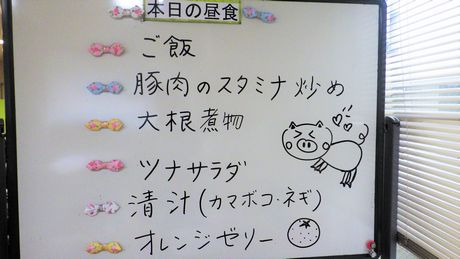 本日の昼食
ご飯
豚肉のスタミナ炒め
大根煮物
ツナサラダ
清汁(カマボコ・ネギ)
オレンジゼリー